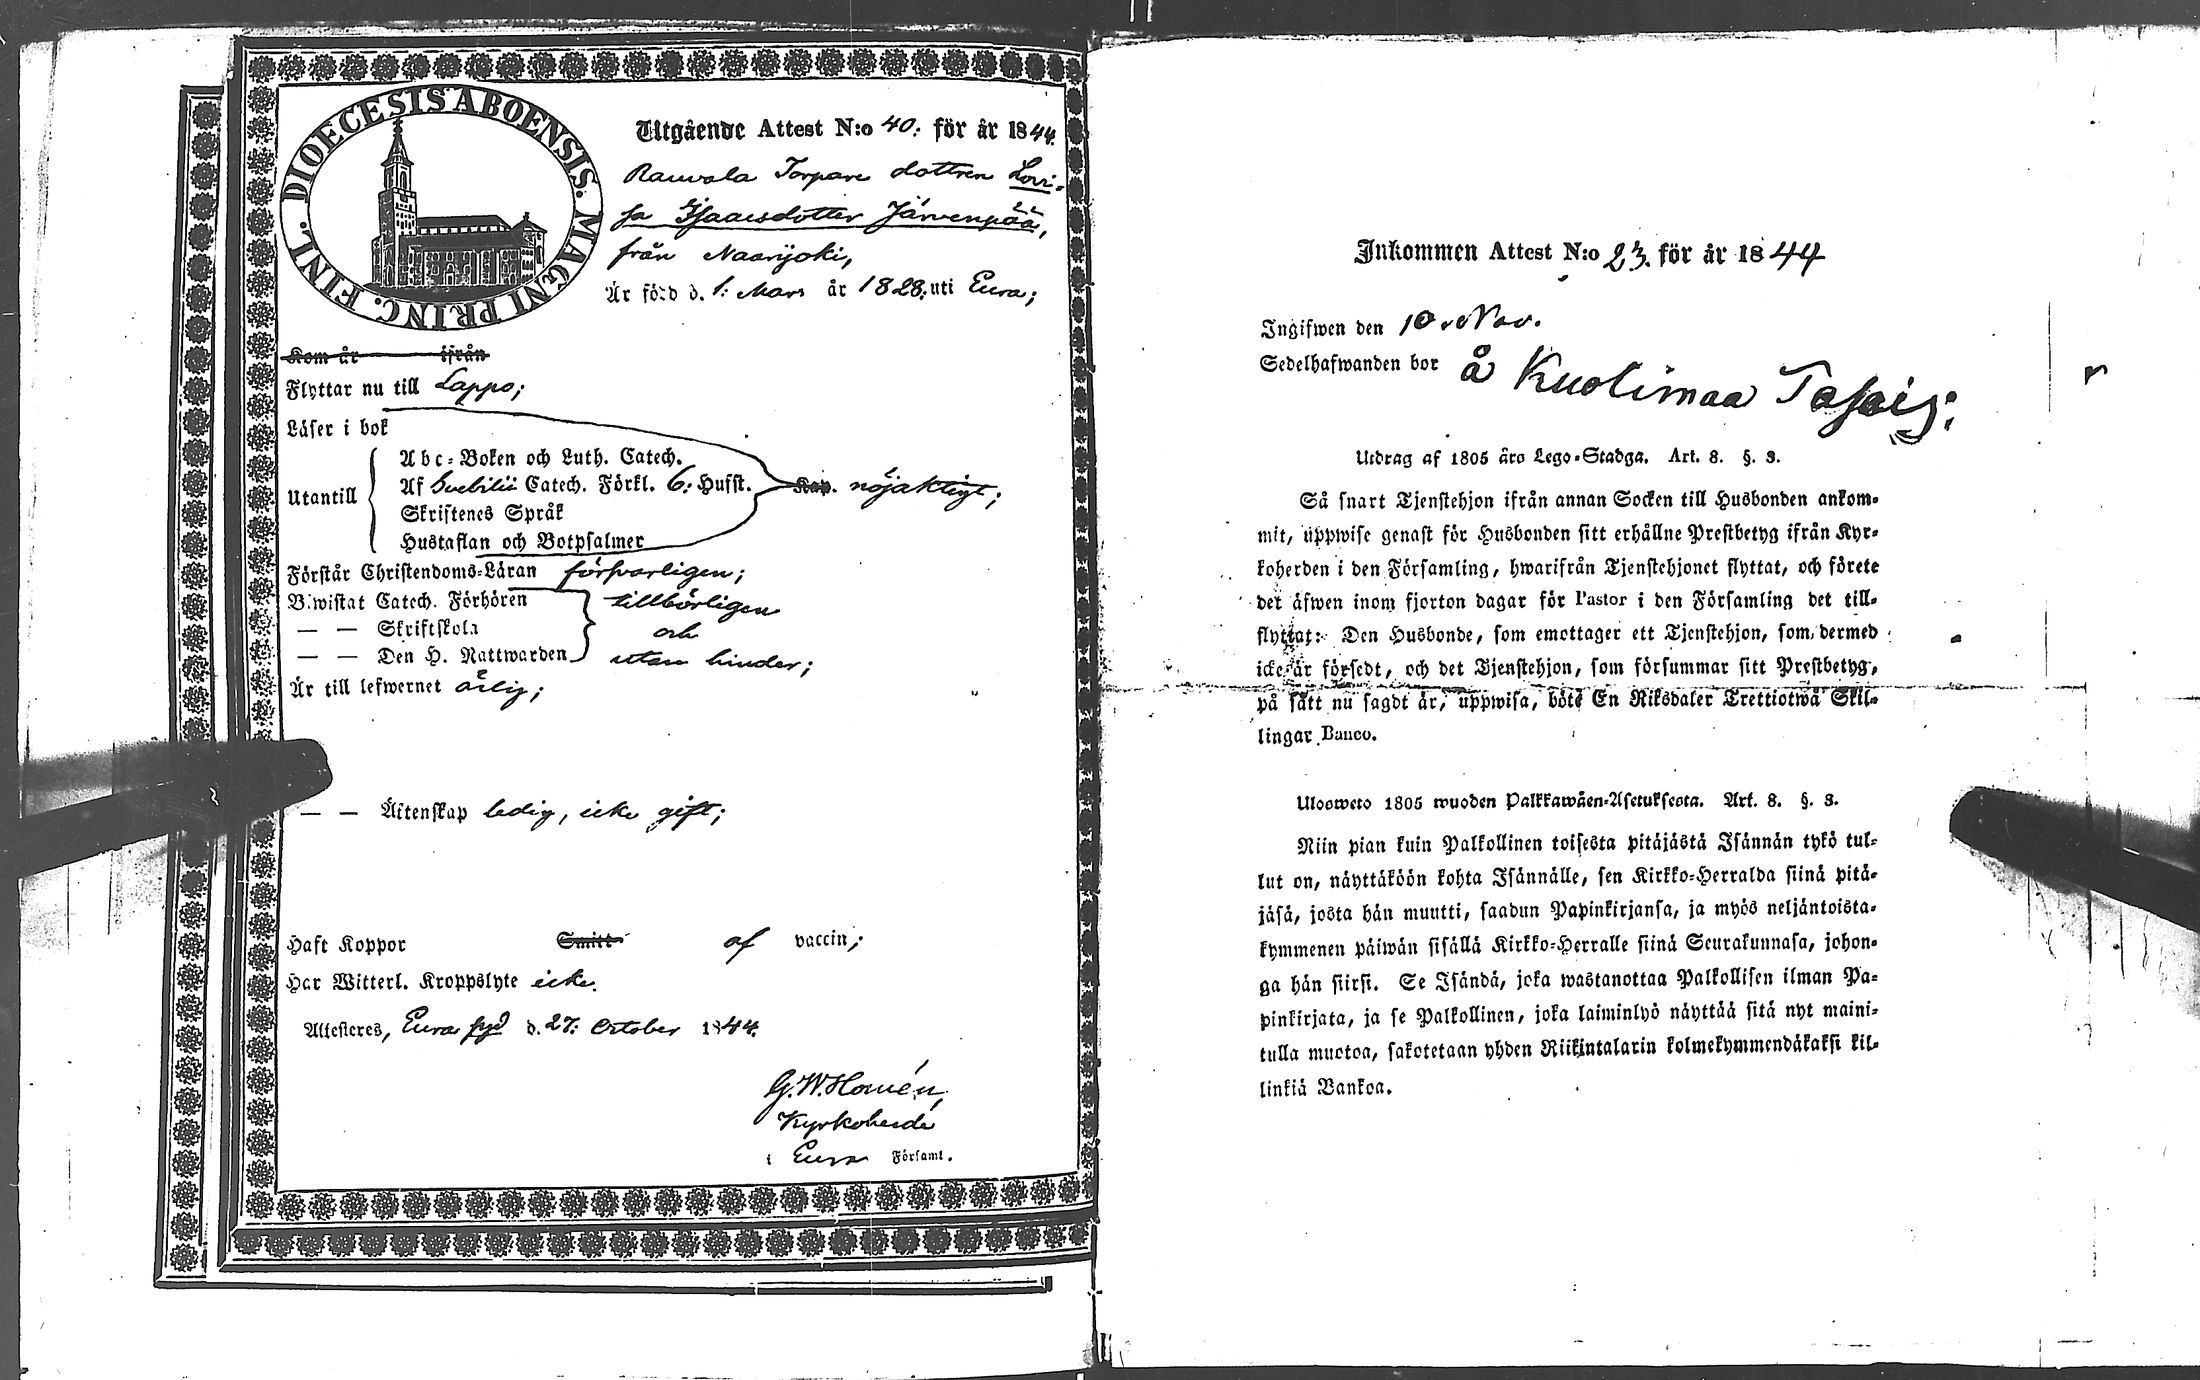 DIOECESIS ABOENSIS. MAGNI PRINC. FINL.
Utgående Attest N:o 40: för år 1844.
Rauvola Torpare dottren Lovi-
sa Isaacsdotter Järvenpää,
från Naarjoki,
Är född d. 1: Mars år 1828: uti Eura;
Kom år ifrån
Flyttar nu till Lappo;
Läser i bok
Utantill
Abc-Boken och Luth. Catech.
Af Svebilii Catech. Förkl. 6: Hufst. Kap. nöjaktigt;
Skriftenes Språk
Hustaflan och Botpsalmer
Förstår Christendoms-Läran försvarligen;
Bewistat Catech. Förhören tillbörligen
— — Skriftskola och
— — Den H. Nattwarden utan hinder;
Är till lefwernet ärlig;
— — Äktenskap ledig, icke gift;
Haft Koppor Smitt af vaccin;
Har Witterl. Kroppslyte icke.
Attesteres, Eura d. 27: October 1844.
G. W. Homén,
Kyrkoherde
i Eura Församl.
Inkommen Attest N:o 23. för år 1844
Ingifwen den 10 Nov.
Sedelhafwanden bor å Kuolimaa
Utdrag af 1805 års Lego-Stadga. Art. 8. §. 3.
Så snart Tjenstehjon ifrån annan Socken till Husbonden ankom-
mit, uppwise genast för Husbonden sitt erhållne Prestbetyg ifrån Kyr-
koherden i den Församling, hwarifrån Tjenstehjonet flyttat, och förete
det äfwen inom fjorton dagar för Pastor i den Församling det till-
flyttat: Den Husbonde, som emottager ett Tjenstehjon, som dermed
icke är försedt, och det Tjenstehjon, som försummar sitt Prestbetyg,
på sätt nu sagdt är, uppwisa, böte En Riksdaler Trettiotwå Skil-
lingar Banco.
Ulosweto 1805 wuoden Palkkawäen-Asetuksesta. Art. 8. §. 3.
Niin pian kuin Palkollinen toisesta pitäjästä Isännän tykö tul-
lut on, näyttäköön kohta Isännälle, sen Kirkko-Herralda siinä pitä-
jäsä, josta hän muutti, saadun Papinkirjansa, ja myös neljäntoista-
kymmenen päiwän sisällä Kirkko-Herralle siinä Seurakunnasa, johon-
ga hän siirsi. Se Isändä, joka wastanottaa Palkollisen ilman Pa-
pinkirjata, ja se Palkollinen, joka laiminlyö näyttää sitä nyt maini-
tulla muotoa, sakotetaan yhden Riikintalarin kolmekymmendäkaksi kil-
linkiä Bankoa.